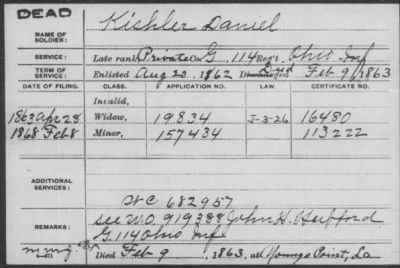 DEAD
NAME OF SOLDIER: Kishler Daniel
SERVICE: Late rank Private Co G, 114 Reg't Ohio Inf
TERM OF SERVICE: Enlisted Aug 20, 1862 Died Feb 9, 1863
DATE OF FILING. CLASS. APPLICATION NO. LAW. CERTIFICATE NO.
Invalid,
1863 Apr 28 Widow, 19834 J-3-26 16480
1868 Feb 8 Minor, 157434 113222
ADDITIONAL SERVICES: WC 682957
REMARKS: see W.O. 919388 John H. Hufford
G. 114 Ohio Inf
Died Feb 9, 1863, at Youngs Point, La